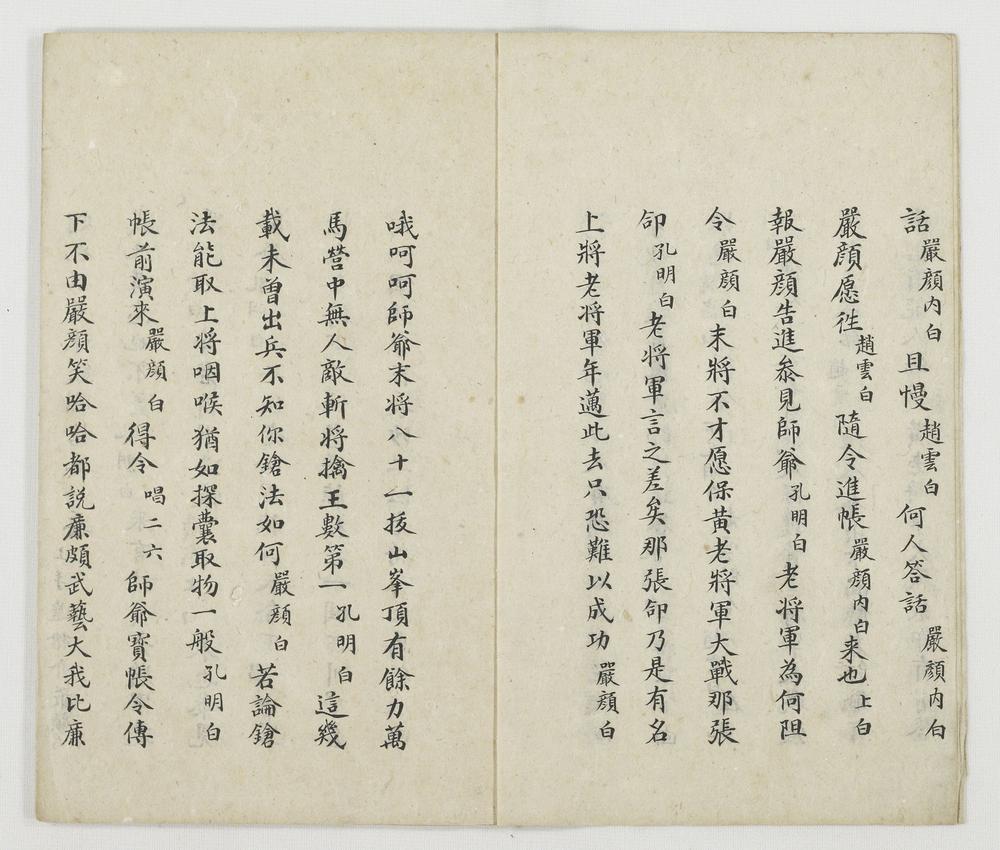 話嚴顏內白且慢趙雲白何人答話嚴顏內白
嚴顏愿徃趙雲白隨令進帳嚴顏內白来也上白
報嚴顏告進叅見師爺孔明白老將軍為何阻
令嚴顏白末將不才愿保黃老將軍大戰那張
郃孔明白老將軍言之差矣那張郃乃是有名
上將老将軍年邁此去只恐難以成功嚴顏白
哦呵呵師爺末將八十一拔山峯頂有餘力萬
馬營中無人敵斬將擒王數第一孔明白這幾
載未曾出兵不知你鎗法如何嚴顏白若論鎗
法能取上將咽喉猶如探囊取物一般孔明白
帳前演來嚴顏白得令唱二六師爺寶帳令傳
下不由嚴顏笑哈哈都說廉頗武藝大我比廉